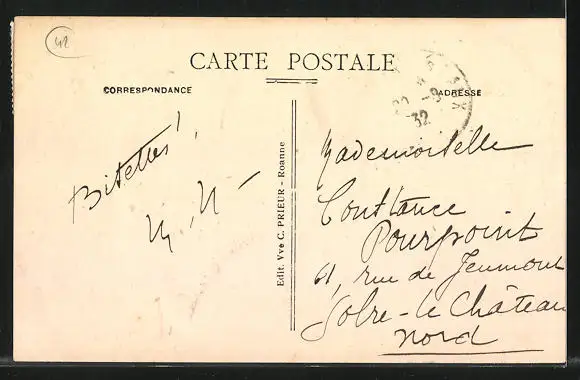 42
CARTE POSTALE
CORRESPONDANCE
ADRESSE
32
Bisettes!
Edit. Vve C. PRIEUR - Roanne
Mademoiselle
Constance
Pourpoint
61, rue de Jeumont
Solre-le Château
Nord